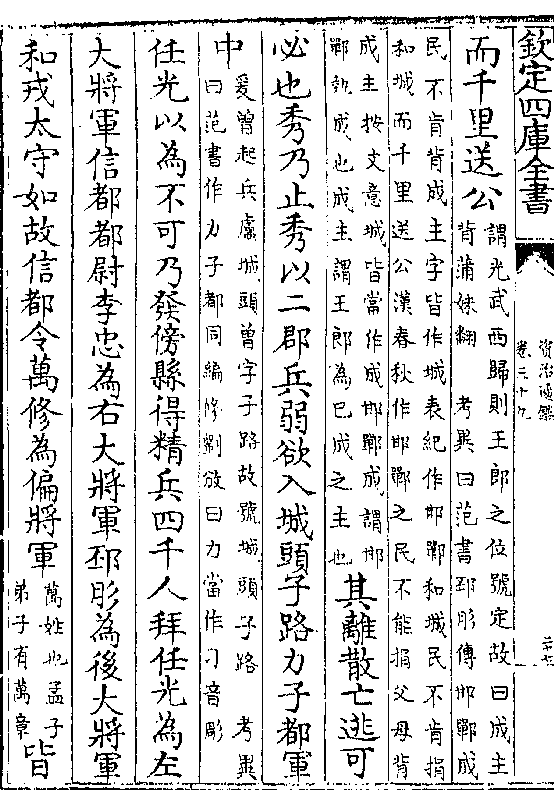 欽定四庫全書
資治通鑑
卷三十九
而千里送公
謂光武西歸則王郎之位號定故曰成主
背蒲妹翻 考異曰范書邳彤傳邯鄲成
民不肯背成主字皆作城袁紀作邯鄲和城民不肯捐
和城而千里送公漢春秋作邯鄲之民不能捐父母背
成主按文意城皆當作成邯鄲成謂邯
鄲勢成也成主謂王郎為巳成之主也
其離散亡逃可
必也秀乃止秀以二郡兵弱欲入城頭子路力子都軍
中
爰曾起兵盧城頭曾字子路故號城頭子路 考異
曰范書作力子都同編修劉攽曰力當作刁音彫
任光以為不可乃發傍縣得精兵四千人拜任光為左
大將軍信都都尉李忠為右大將軍邳彤為後大將軍
和戎太守如故信都令萬修為偏將軍
萬姓也孟子
弟子有萬章
皆